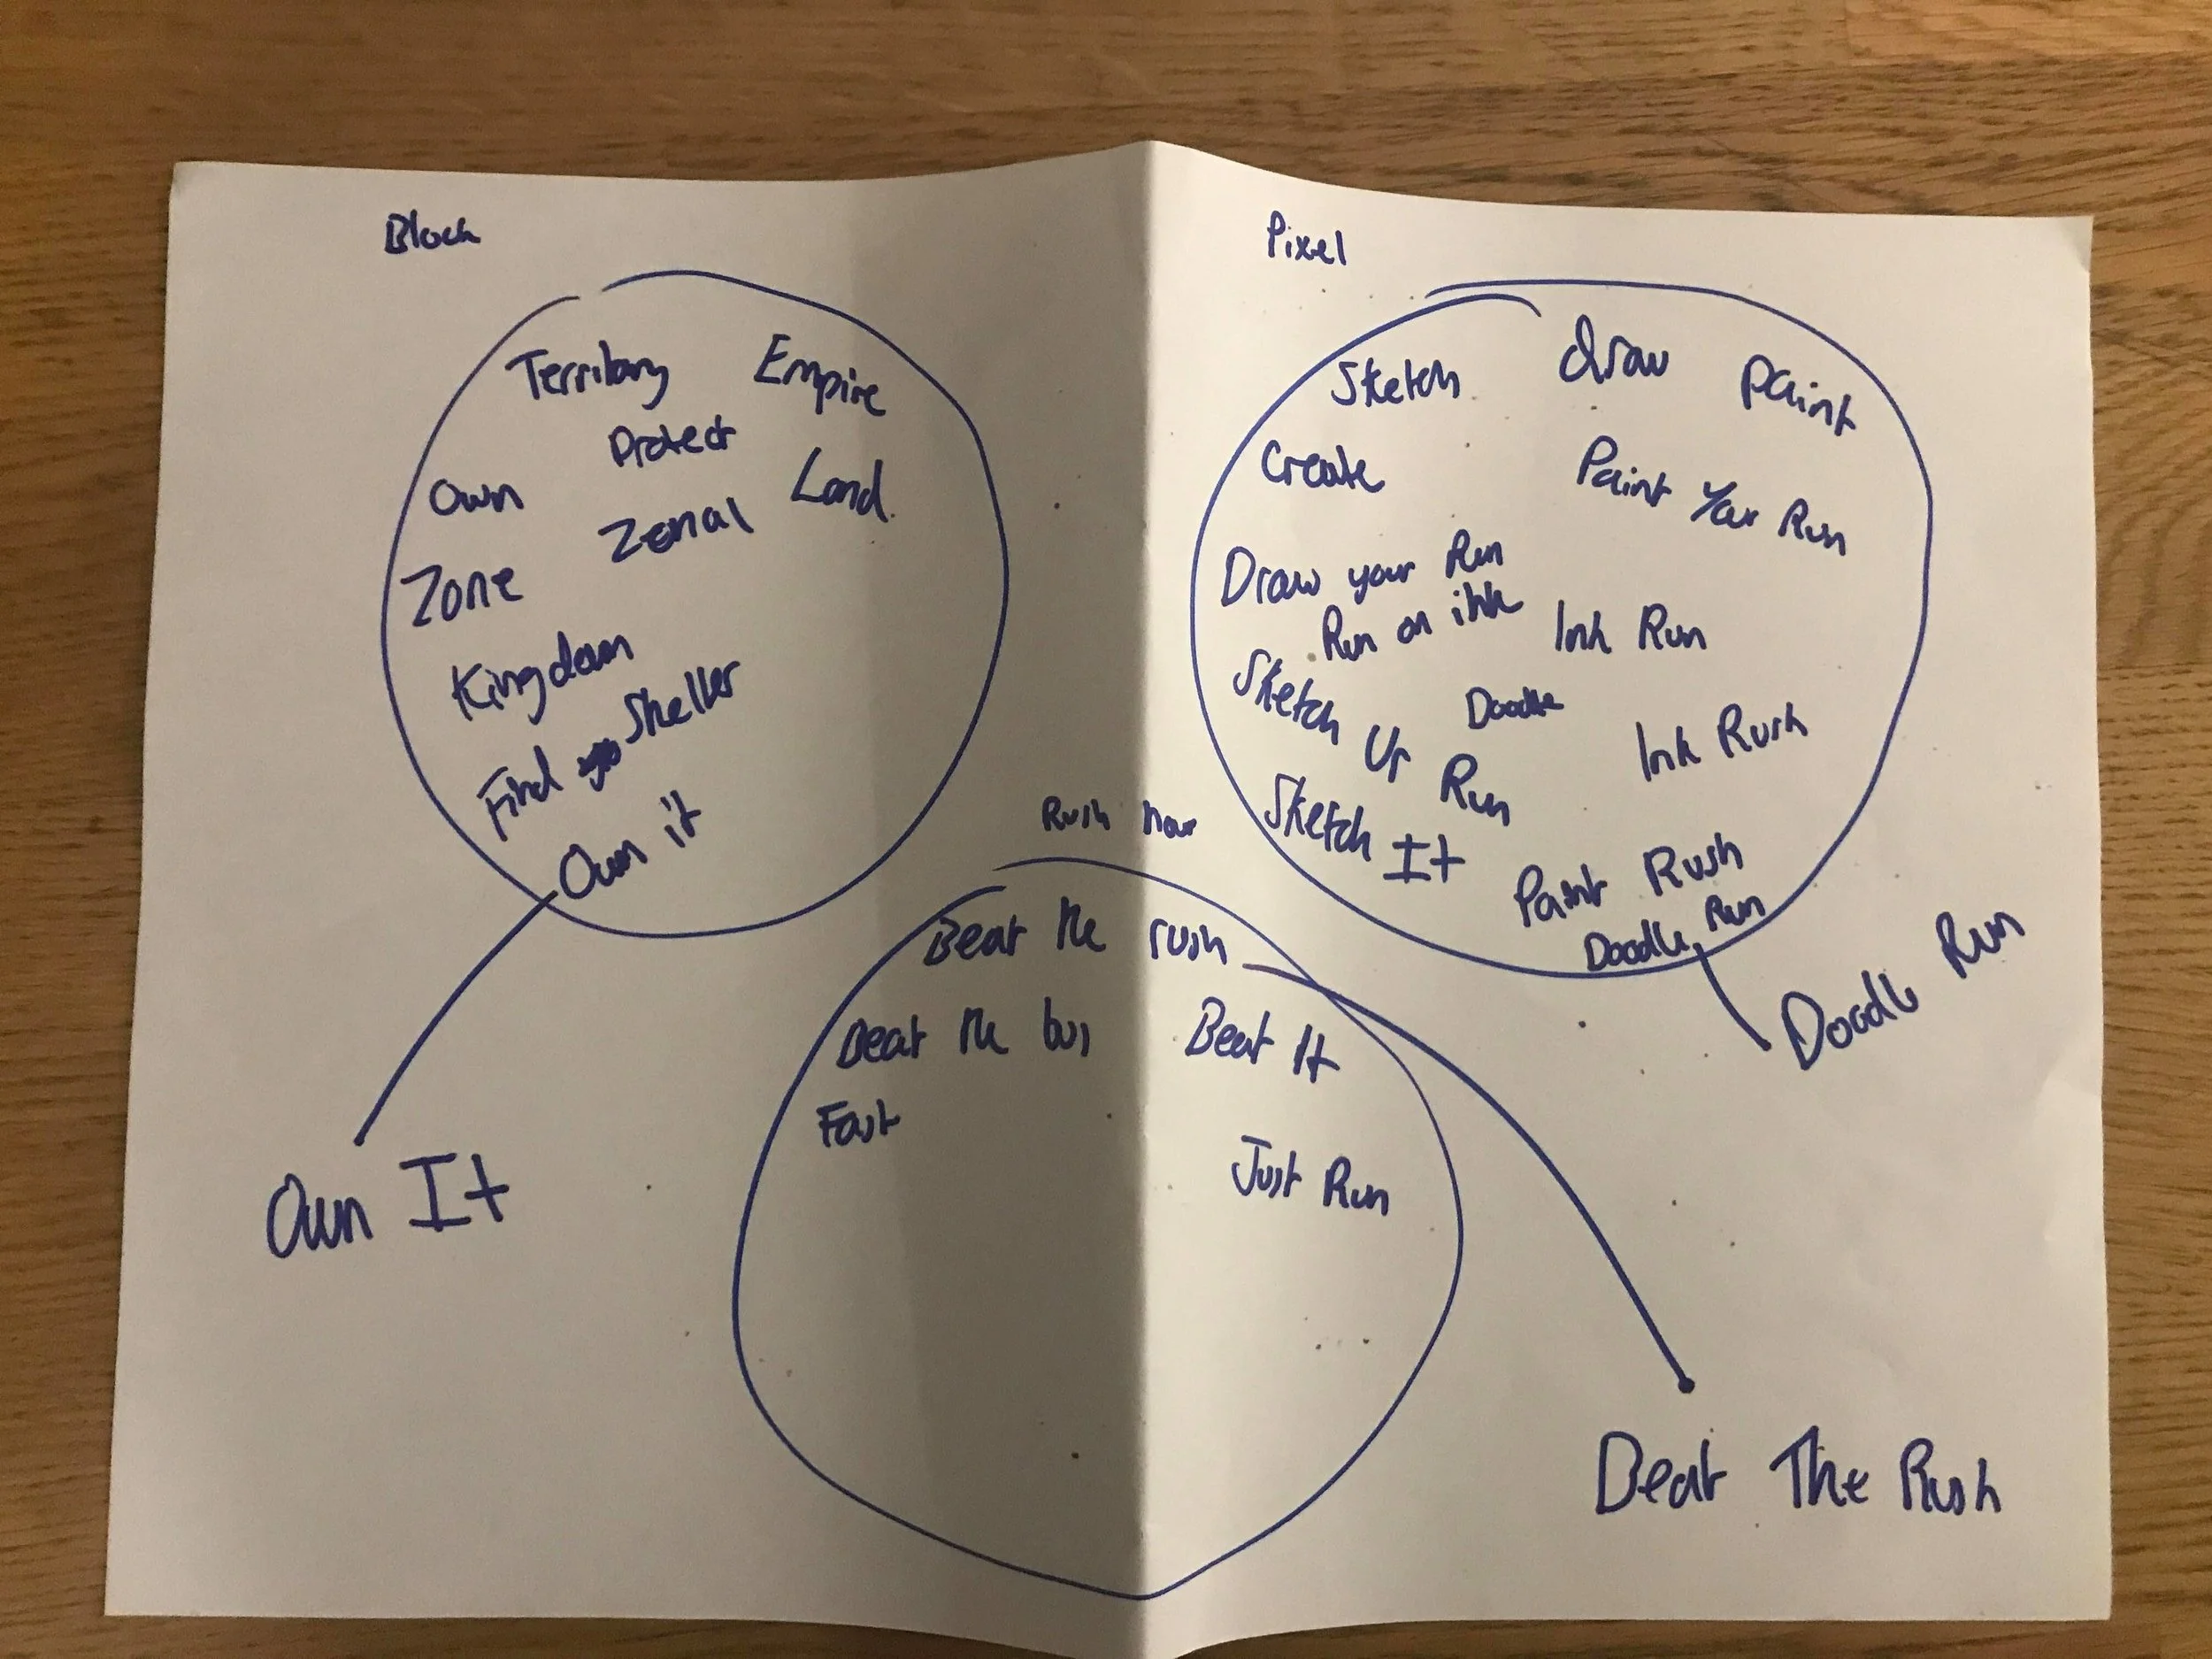 Block
Territory
Empire
Protect
Own
Land
Zonal
Zone
Kingdom
Find Shelter
Own it
Own It
Pixel
Sketch
draw
Paint
Create
Paint Your Run
Draw your Run
Run on ink
Ink Run
Sketch Ur Run
Doodle
Ink Rush
Sketch It
Paint Rush
Doodle Run
Doodle Run
Rush hour
Beat the rush
Beat the bus
Beat It
Fast
Just Run
Beat The Rush